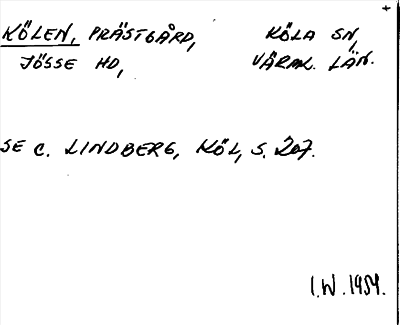 KÖLEN, PRÄSTGÅRD, KÖLA SN,
JÖSSE HD, VÄRML. LÄN.
SE C. LINDBERG, KÖL, S. 207.
I.W. 1959.